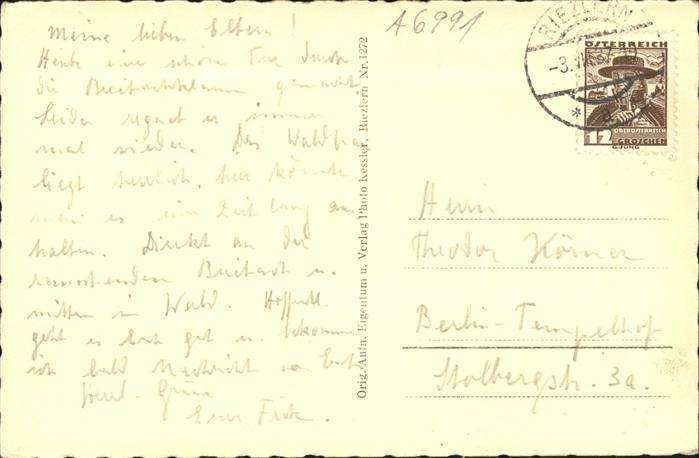 A6991
RIEZLERN
-3.VII.37.10
* a
ÖSTERREICH
OBERÖSTERREICH
12 GROSCHEN
G.JUNG
Meine lieben Eltern!
Heute eine schöne Tour durch
die Breitachklamm gemacht.
Leider regnet es immer
mal wieder. Das
liegt herrlich, hier könnte
man es eine Zeit lang aus
halten. Direkt an der
rauschenden Breitach u.
mitten im Wald. Hoffentl.
geht es Euch gut u. bekomme
ich bald Nachricht von Euch.
Herzl. Grüße
Eure
Orig.-Aufn. Eigentum u. Verlag Photo Kessler, Riezlern Nr. 1272
Herrn
Theodor Körner
Berlin-Tempelhof
Stolbergstr. 3a.